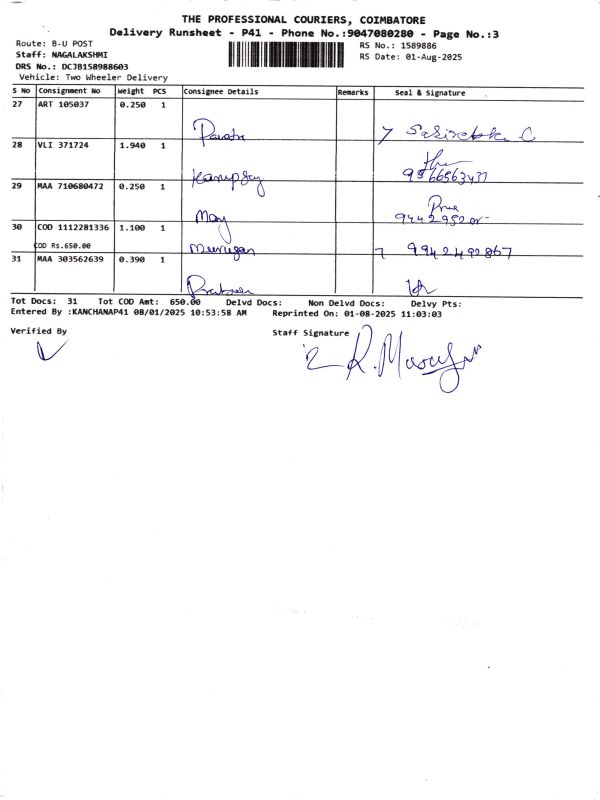 THE PROFESSIONAL COURIERS, COIMBATORE
Delivery Runsheet - P41 - Phone No.:9047080280 - Page No.:3
Route: B-U POST
RS No.: 1589886
Staff: NAGALAKSHMI
RS Date: 01-Aug-2025
DRS No.: DCJB158988603
Vehicle: Two Wheeler Delivery
S No Consignment No Weight PCS Consignee Details Remarks Seal & Signature
27 ART 105037 0.250 1
28 VLI 371724 1.940 1
9566563437
29 MAA 710680472 0.250 1
May
30 COD 1112281336 1.100 1
COD Rs.650.00 Murugan 9942492867
31 MAA 303562639 0.390 1
Tot Docs: 31 Tot COD Amt: 650.00 Delvd Docs: Non Delvd Docs: Delvy Pts:
Entered By :KANCHANAP41 08/01/2025 10:53:58 AM Reprinted On: 01-08-2025 11:03:03
Verified By Staff Signature